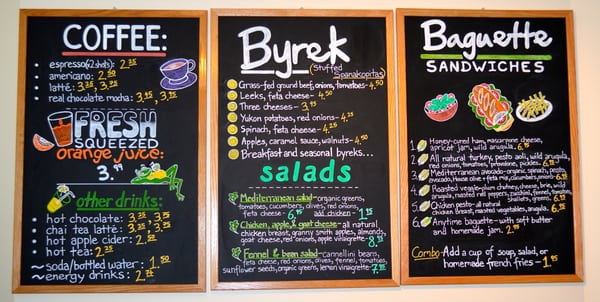 COFFEE:
espresso(2 shots): 2.35
americano: 2.50
latté: 3.35, 3.75
real chocolate mocha: 3.95, 3.95
FRESH
SQUEEZED
orange juice:
3.99
other drinks:
hot chocolate: 3.35 3.75
chai tea latté: 3.35 3.95
hot apple cider: 2.50
hot tea: 2.35
~ soda/bottled water: 1.50
~ energy drinks: 2.74
Byrek
(Stuffed
Spanakopitas)
Grass-fed ground beef, onions, tomatoes- 4.50
Leeks, feta cheese- 4.50
Three cheeses- 3.95
Yukon potatoes, red onions- 4.25
Spinach, feta cheese- 4.25
Apples, caramel sauce, walnuts- 4.50
Breakfast and seasonal byreks...
salads
Mediterranean salad-organic greens,
tomatoes, cucumbers, olives, red onions,
feta cheese- 6.95 add chicken- 1.75
Chicken, apple & goat cheese-all natural
chicken breast, granny smith apples, almonds,
goat cheese, red onions, apple vinaigrette-
Fennel & bean salad-cannellini beans,
feta cheese, red onions, olives, fennel, tomatoes,
sunflower seeds, organic greens, lemon vinaigrette-
Baguette
SANDWICHES
1. Honey-cured ham, mascarpone cheese,
apricot jam, wild arugula.
2. All natural turkey, pesto aoli, wild arugula,
red onions, tomatoes, provolone, pickles.
3. Mediterranean avocado-organic spinach, pesto,
4. Roasted veggie-plum chutney, cheese, brie, wild
arugula, roasted bell peppers, zucchini, fennel, tomatoes,
shallots, greens.
5. Chicken pesto-all natural
chicken breast, roasted vegetables, arugula.
6. Anytime baguette- with soft butter
and homemade jam.
Combo- Add a cup of soup, salad, or
homemade french fries - 1.95